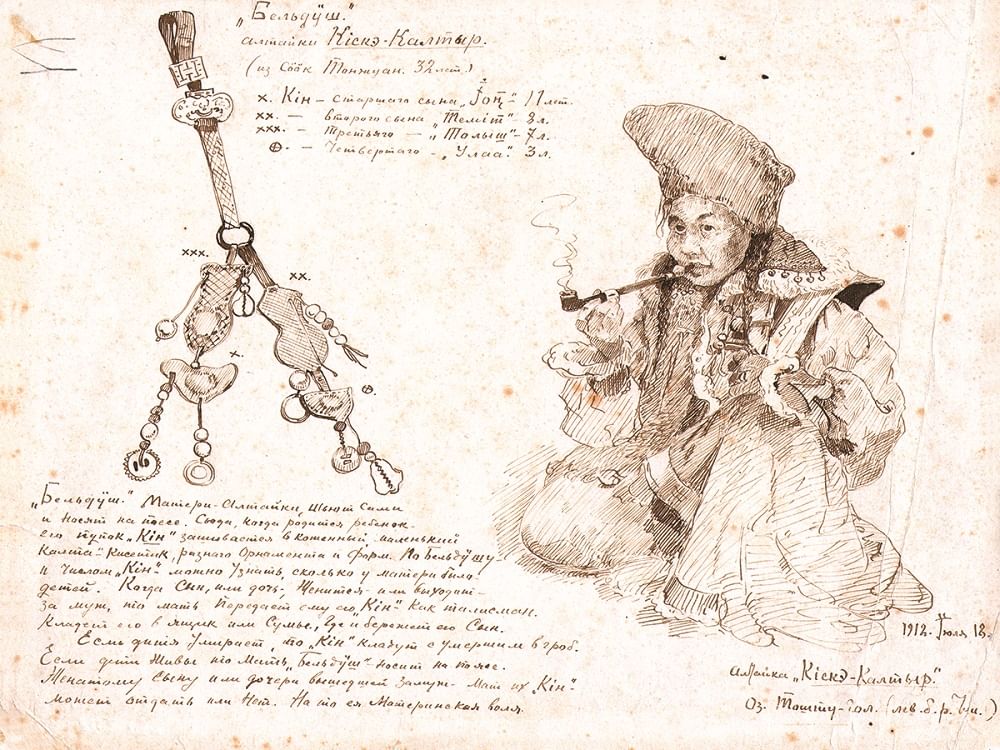 „Бельдӱш."
алтайки Кiскэ-Калтыр.
(из Сööк Тонжуан. 32 лет.)
х. Кiн — старшаго сына „Jоҥ" — 11 лет.
хх. — второго сына „Темiт" — 8 л.
ххх. — третьяго — „Толыш" — 7 л.
— Четвертаго — „Улаа". 3 л.
ххх.
хх.
х.
„Бельдӱш." Матери-Алтайки шьют сами
и носят на поясе. Сюда, когда родится ребенок
его пупок „Кiн" зашивается в коженный маленький
калта-кисетик, разнаго Орнамента и форм. По Бельдӱшу
и числом „Кiн" можно узнать, сколько у матери было
детей. Когда Сын, или дочь, Женится или выходит
за муж, то мать передает ему его „Кiн" как талисман.
Кладет его в ящик или Сумы, где и бережет его Сын.
Если дитя Умирает, то „Кiн" кладут с умершим в гроб.
Если дити живы то Мать „Бельдӱш" носит на поясе.
Женатому Сыну или дочери вышедшей Замуж — Мат их „Кiн"
может отдать или Нет. На то ея Материнская воля.
1912. Iюля 18.
алтайка „Кiскэ-Калтыр."
Оз. Тошту-гол. (лев. б. р.